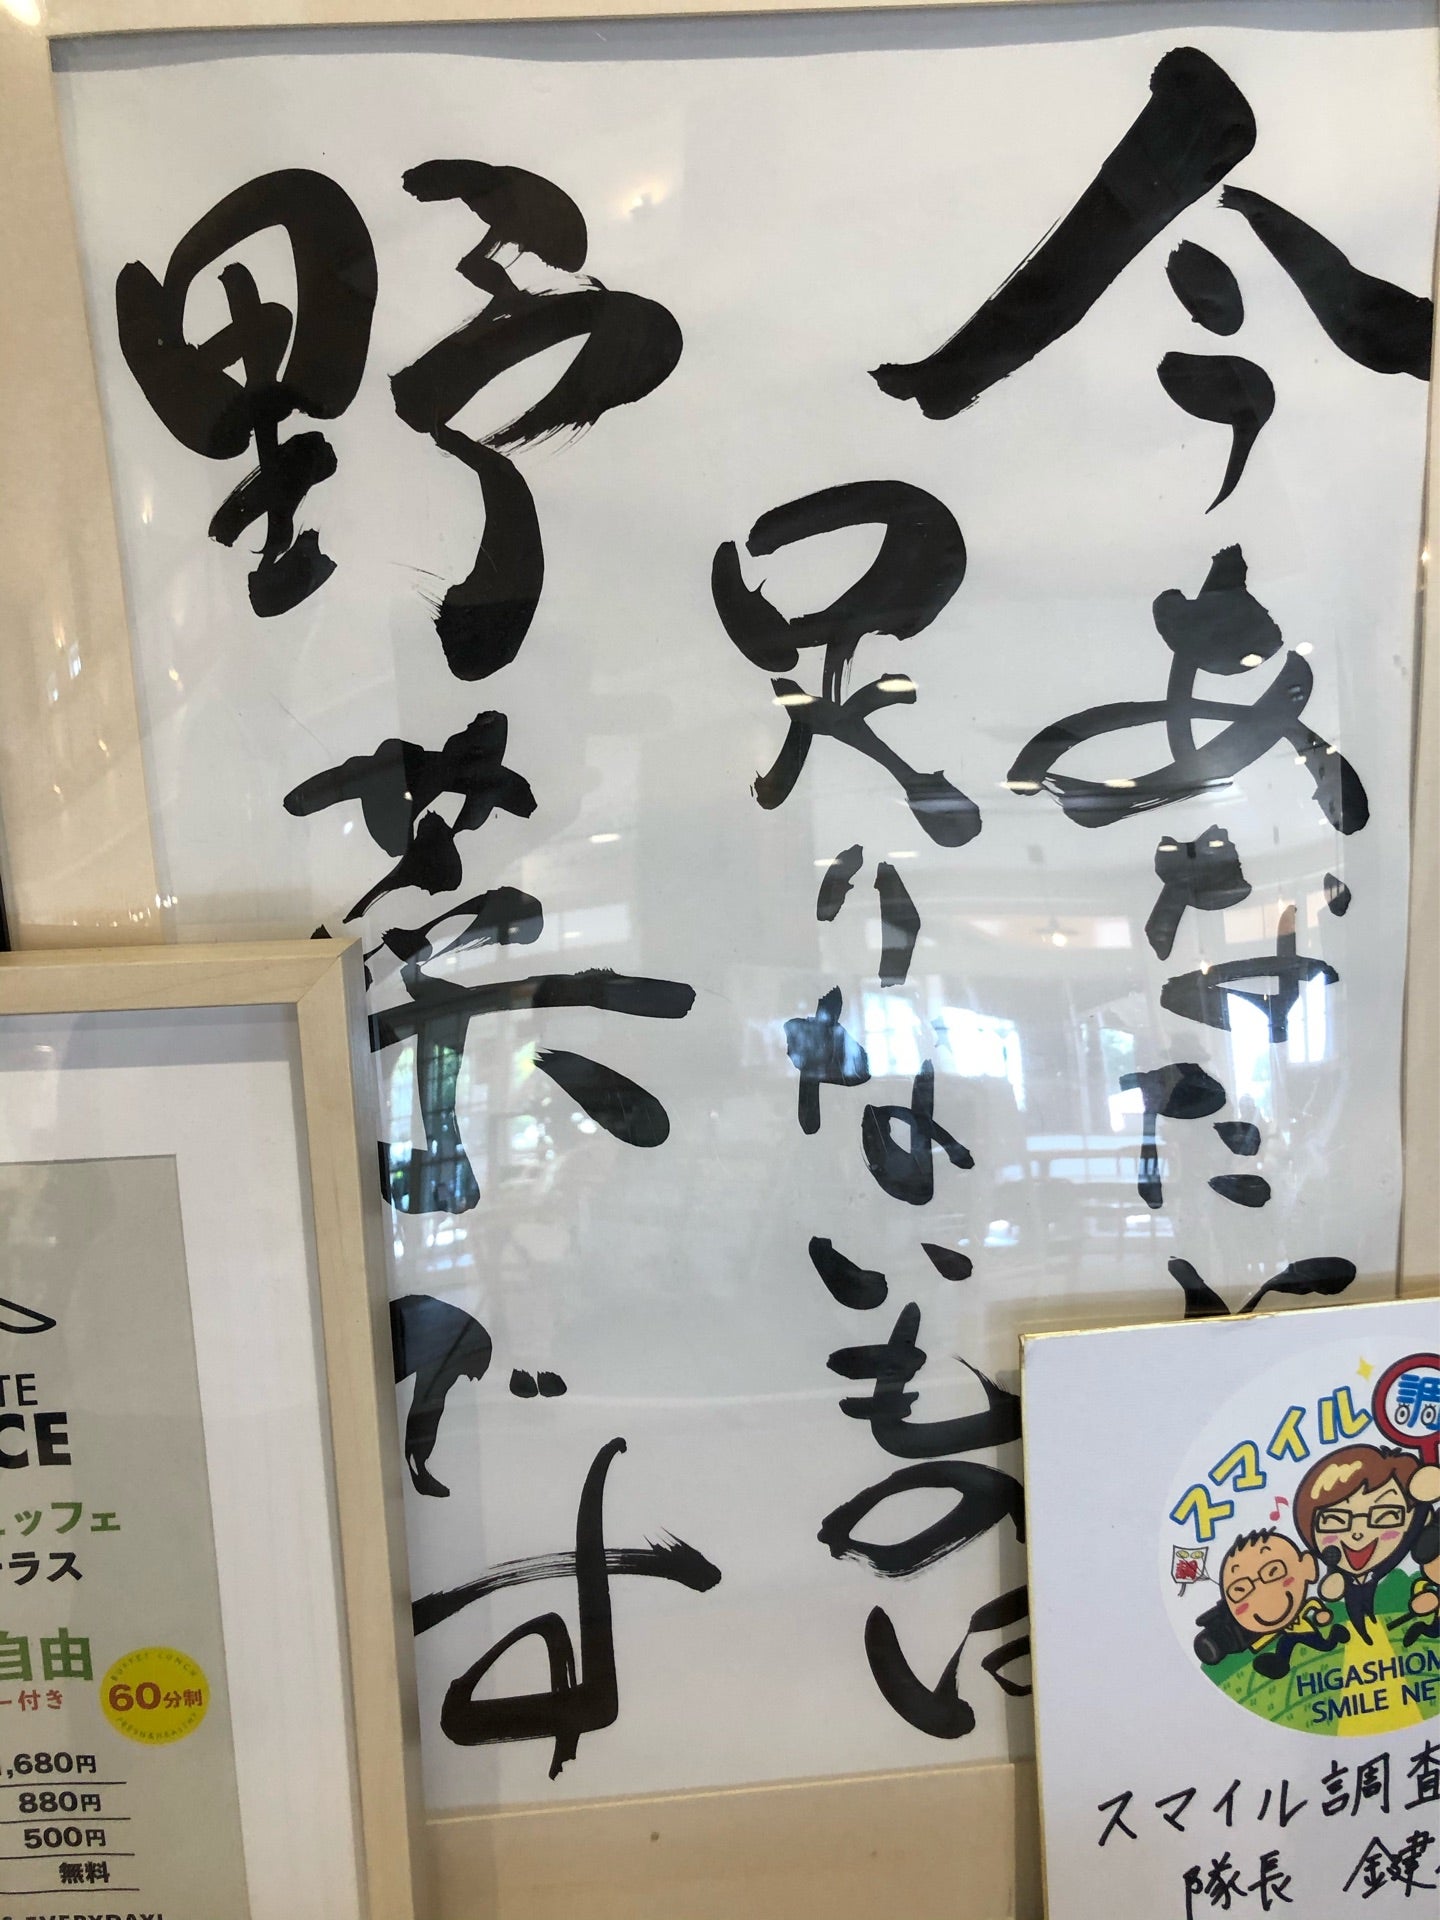 今あなたに
足りないものは
野菜です
TE
CE
ュッフェ
テラス
自由
ー付き
BUFFET LUNCH
60分制
FRESH&HEALTHY
1,680円
880円
500円
無料
EVERYDAY!
スマイル
調
HIGASHIOM
SMILE NE
スマイル調査
隊長 鍵